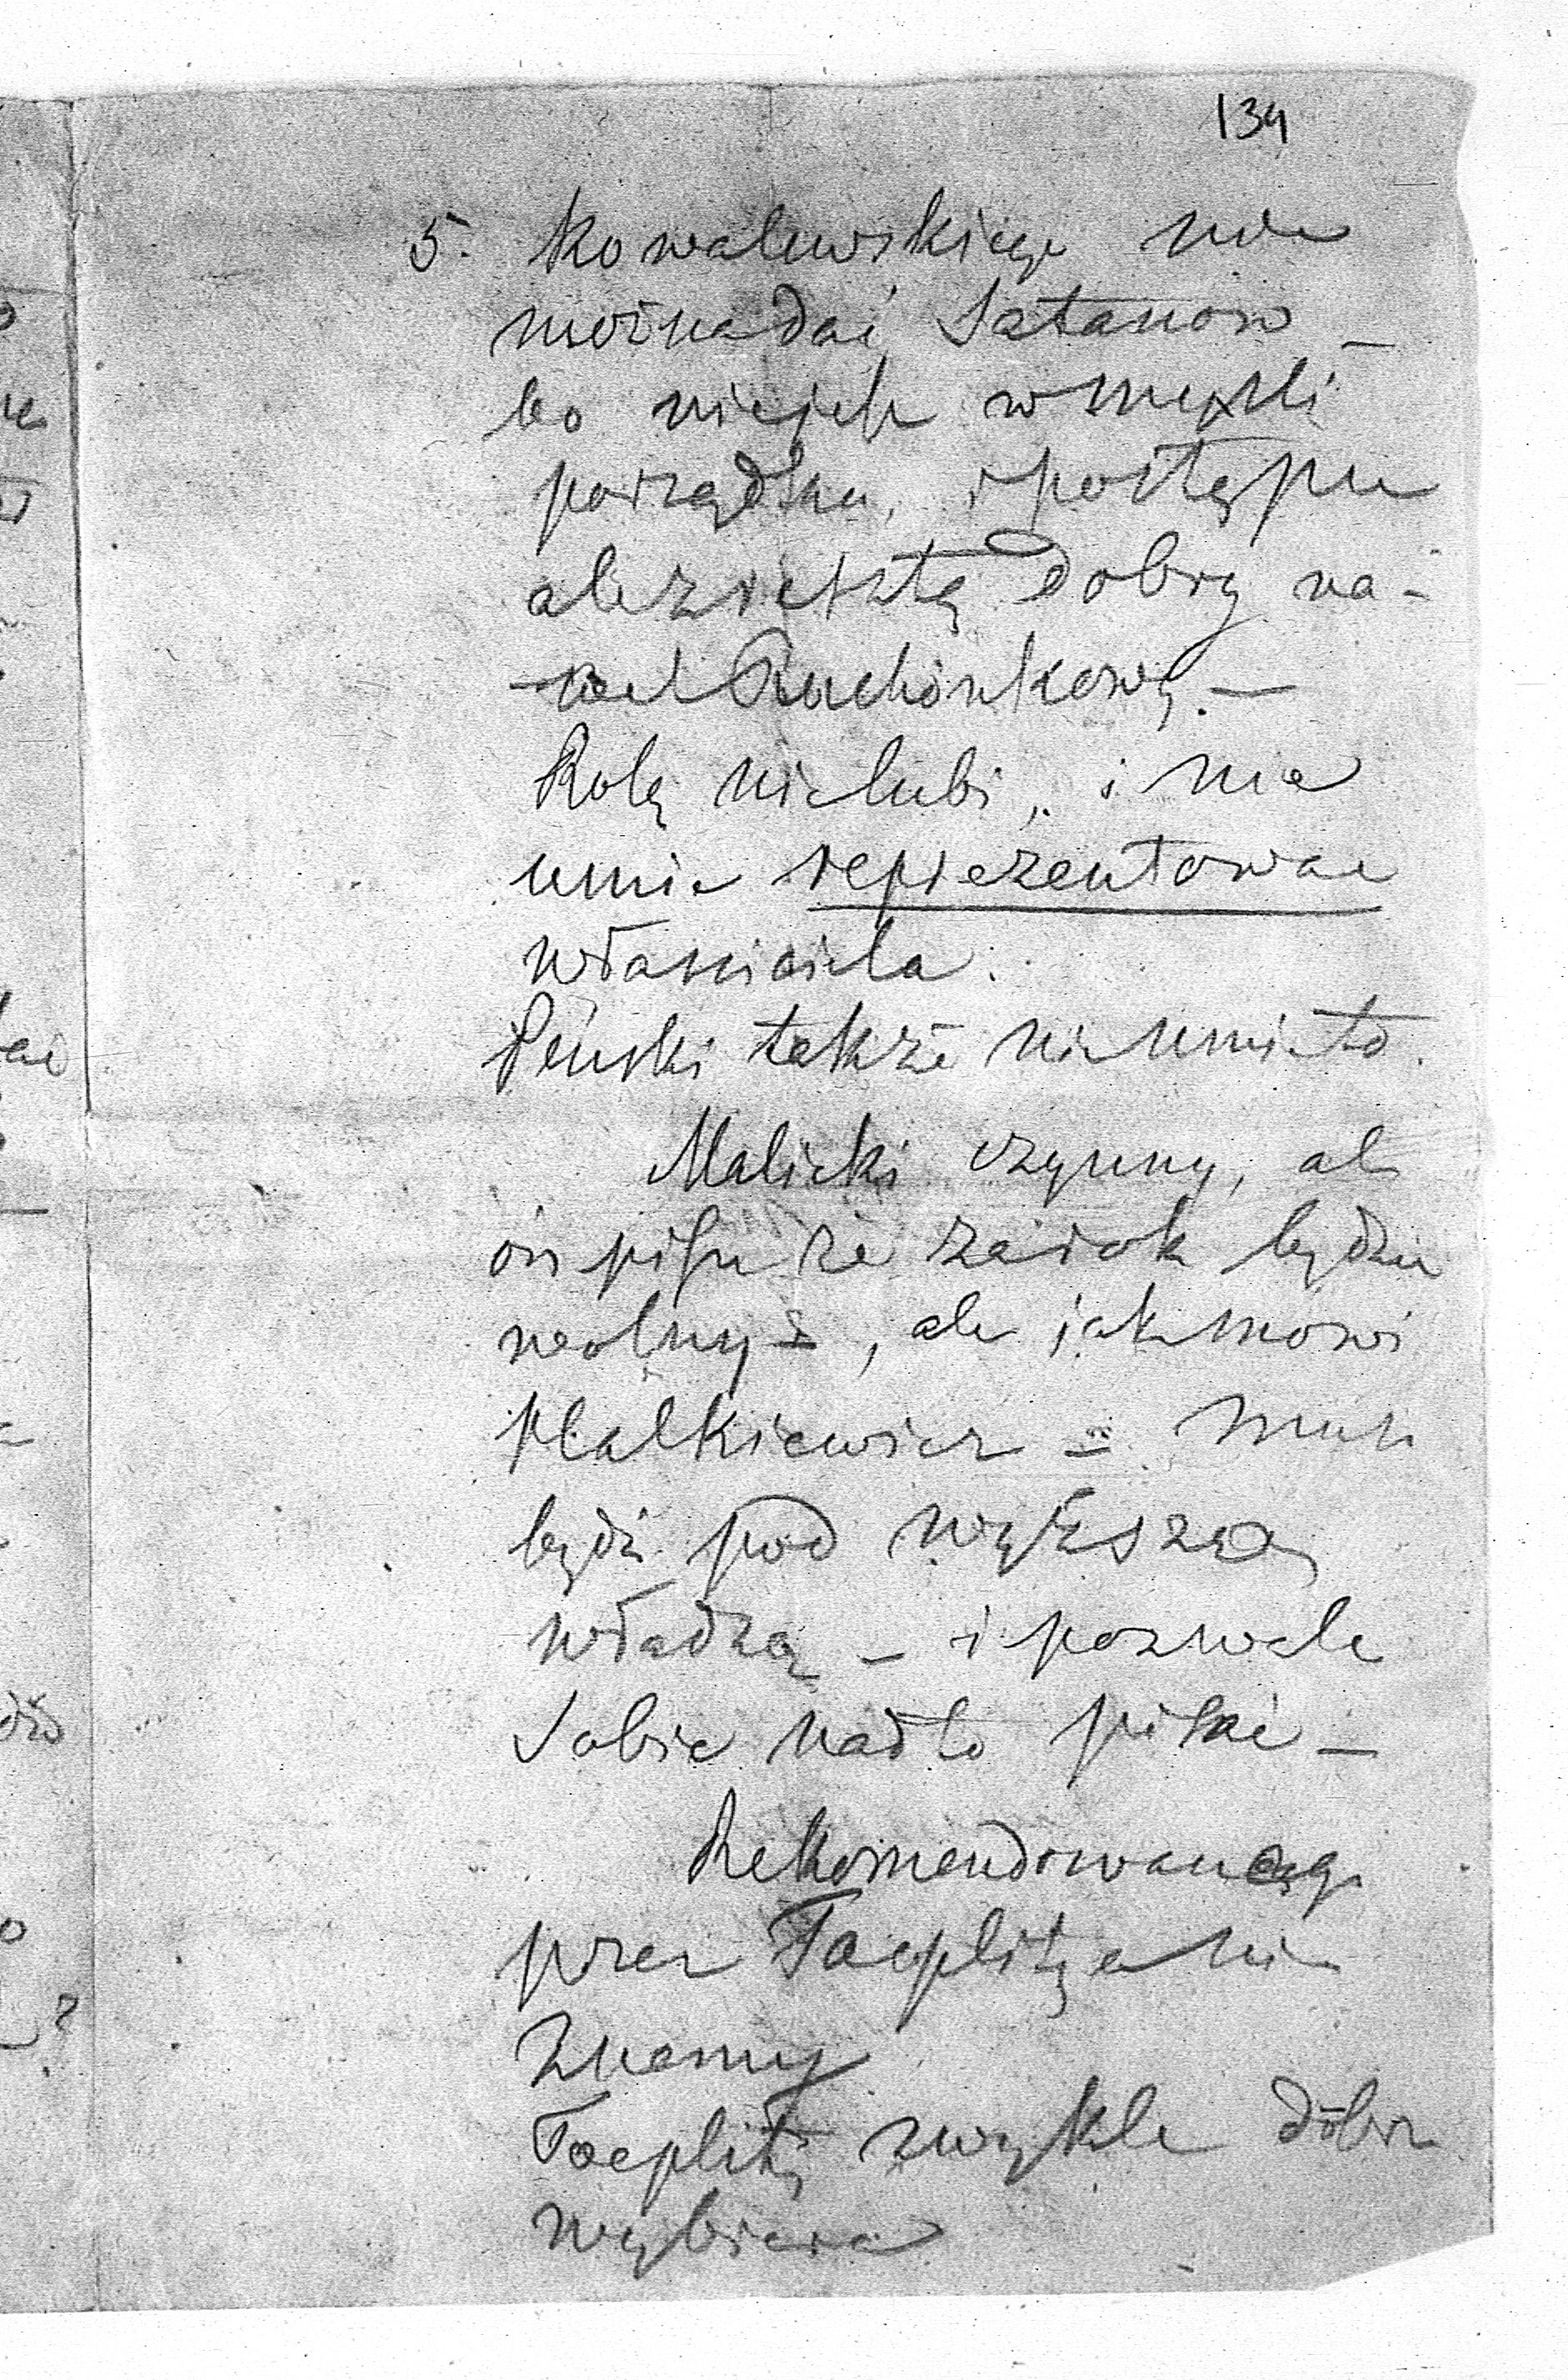 134
5. Kowalewskiego nie
można dać Satanów –
bo niejest w myśli
porządku, i postępu
ale zresztą dobry na-
wet Rachunkowy. –
Rolę nielubi, i nie
umie reprezentować
właściciela.
Peński także nie umie to.
Malicki czynny, ale
on pisze że za rok będzie
wolny –, ale jak mówi
Malkiewicz – musi
bydź pod wyższą
władzą – i pozwala
Sobie nadto pisać –
Rekomendowanego
przez Toeplitza nie
znamy
Toeplitz zwykle dobrze
wybiera